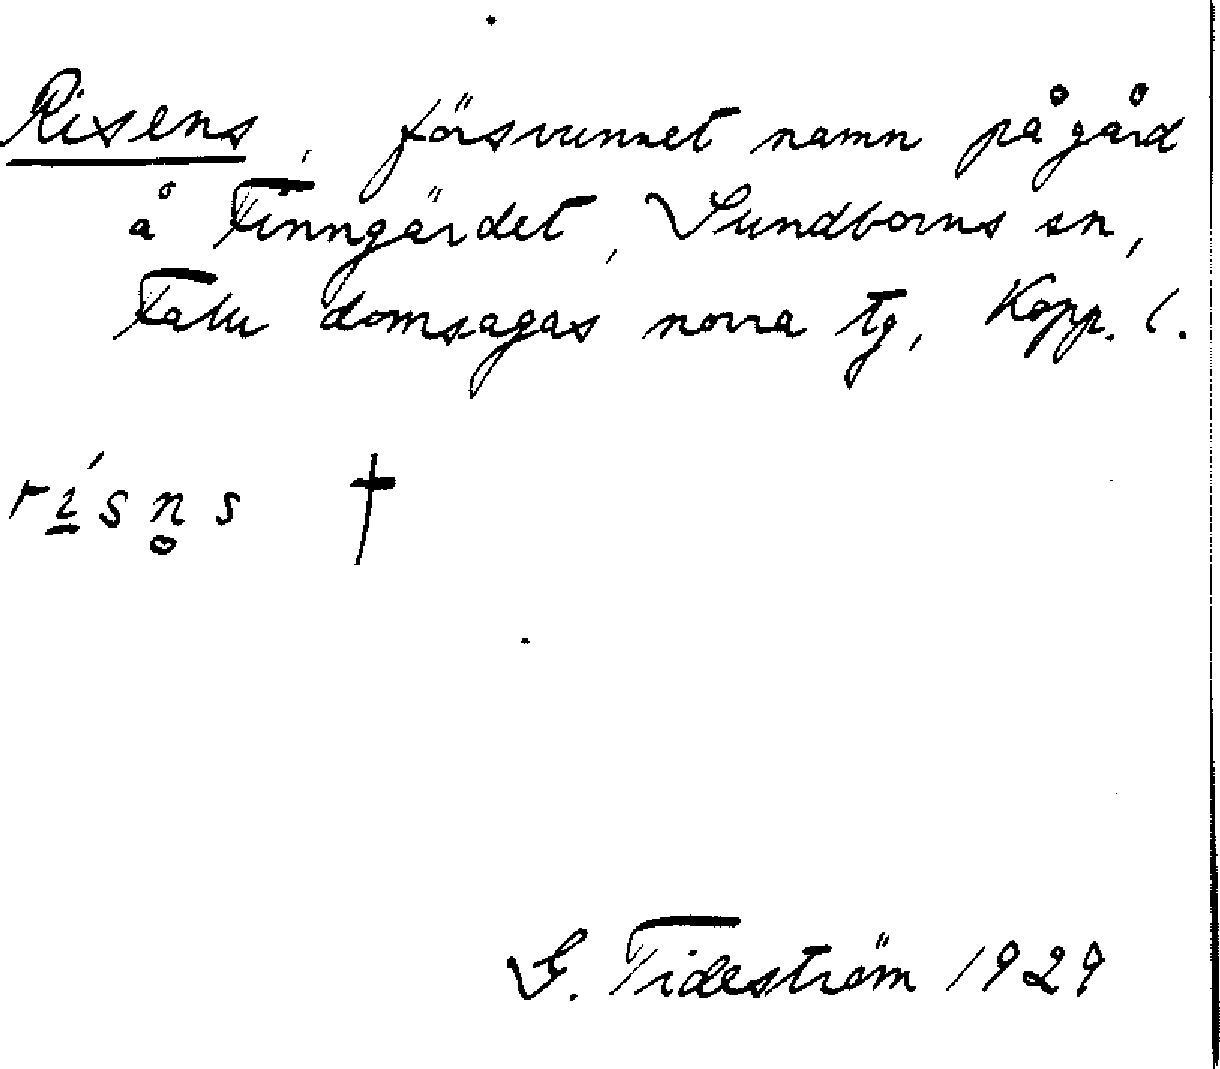 Risens, försvunnet namn på gård
å Finngärdet, Sundborns sn,
Falu domsagas norra tg, Kopp. l.
rísn̥s †
G. Tideström 1929